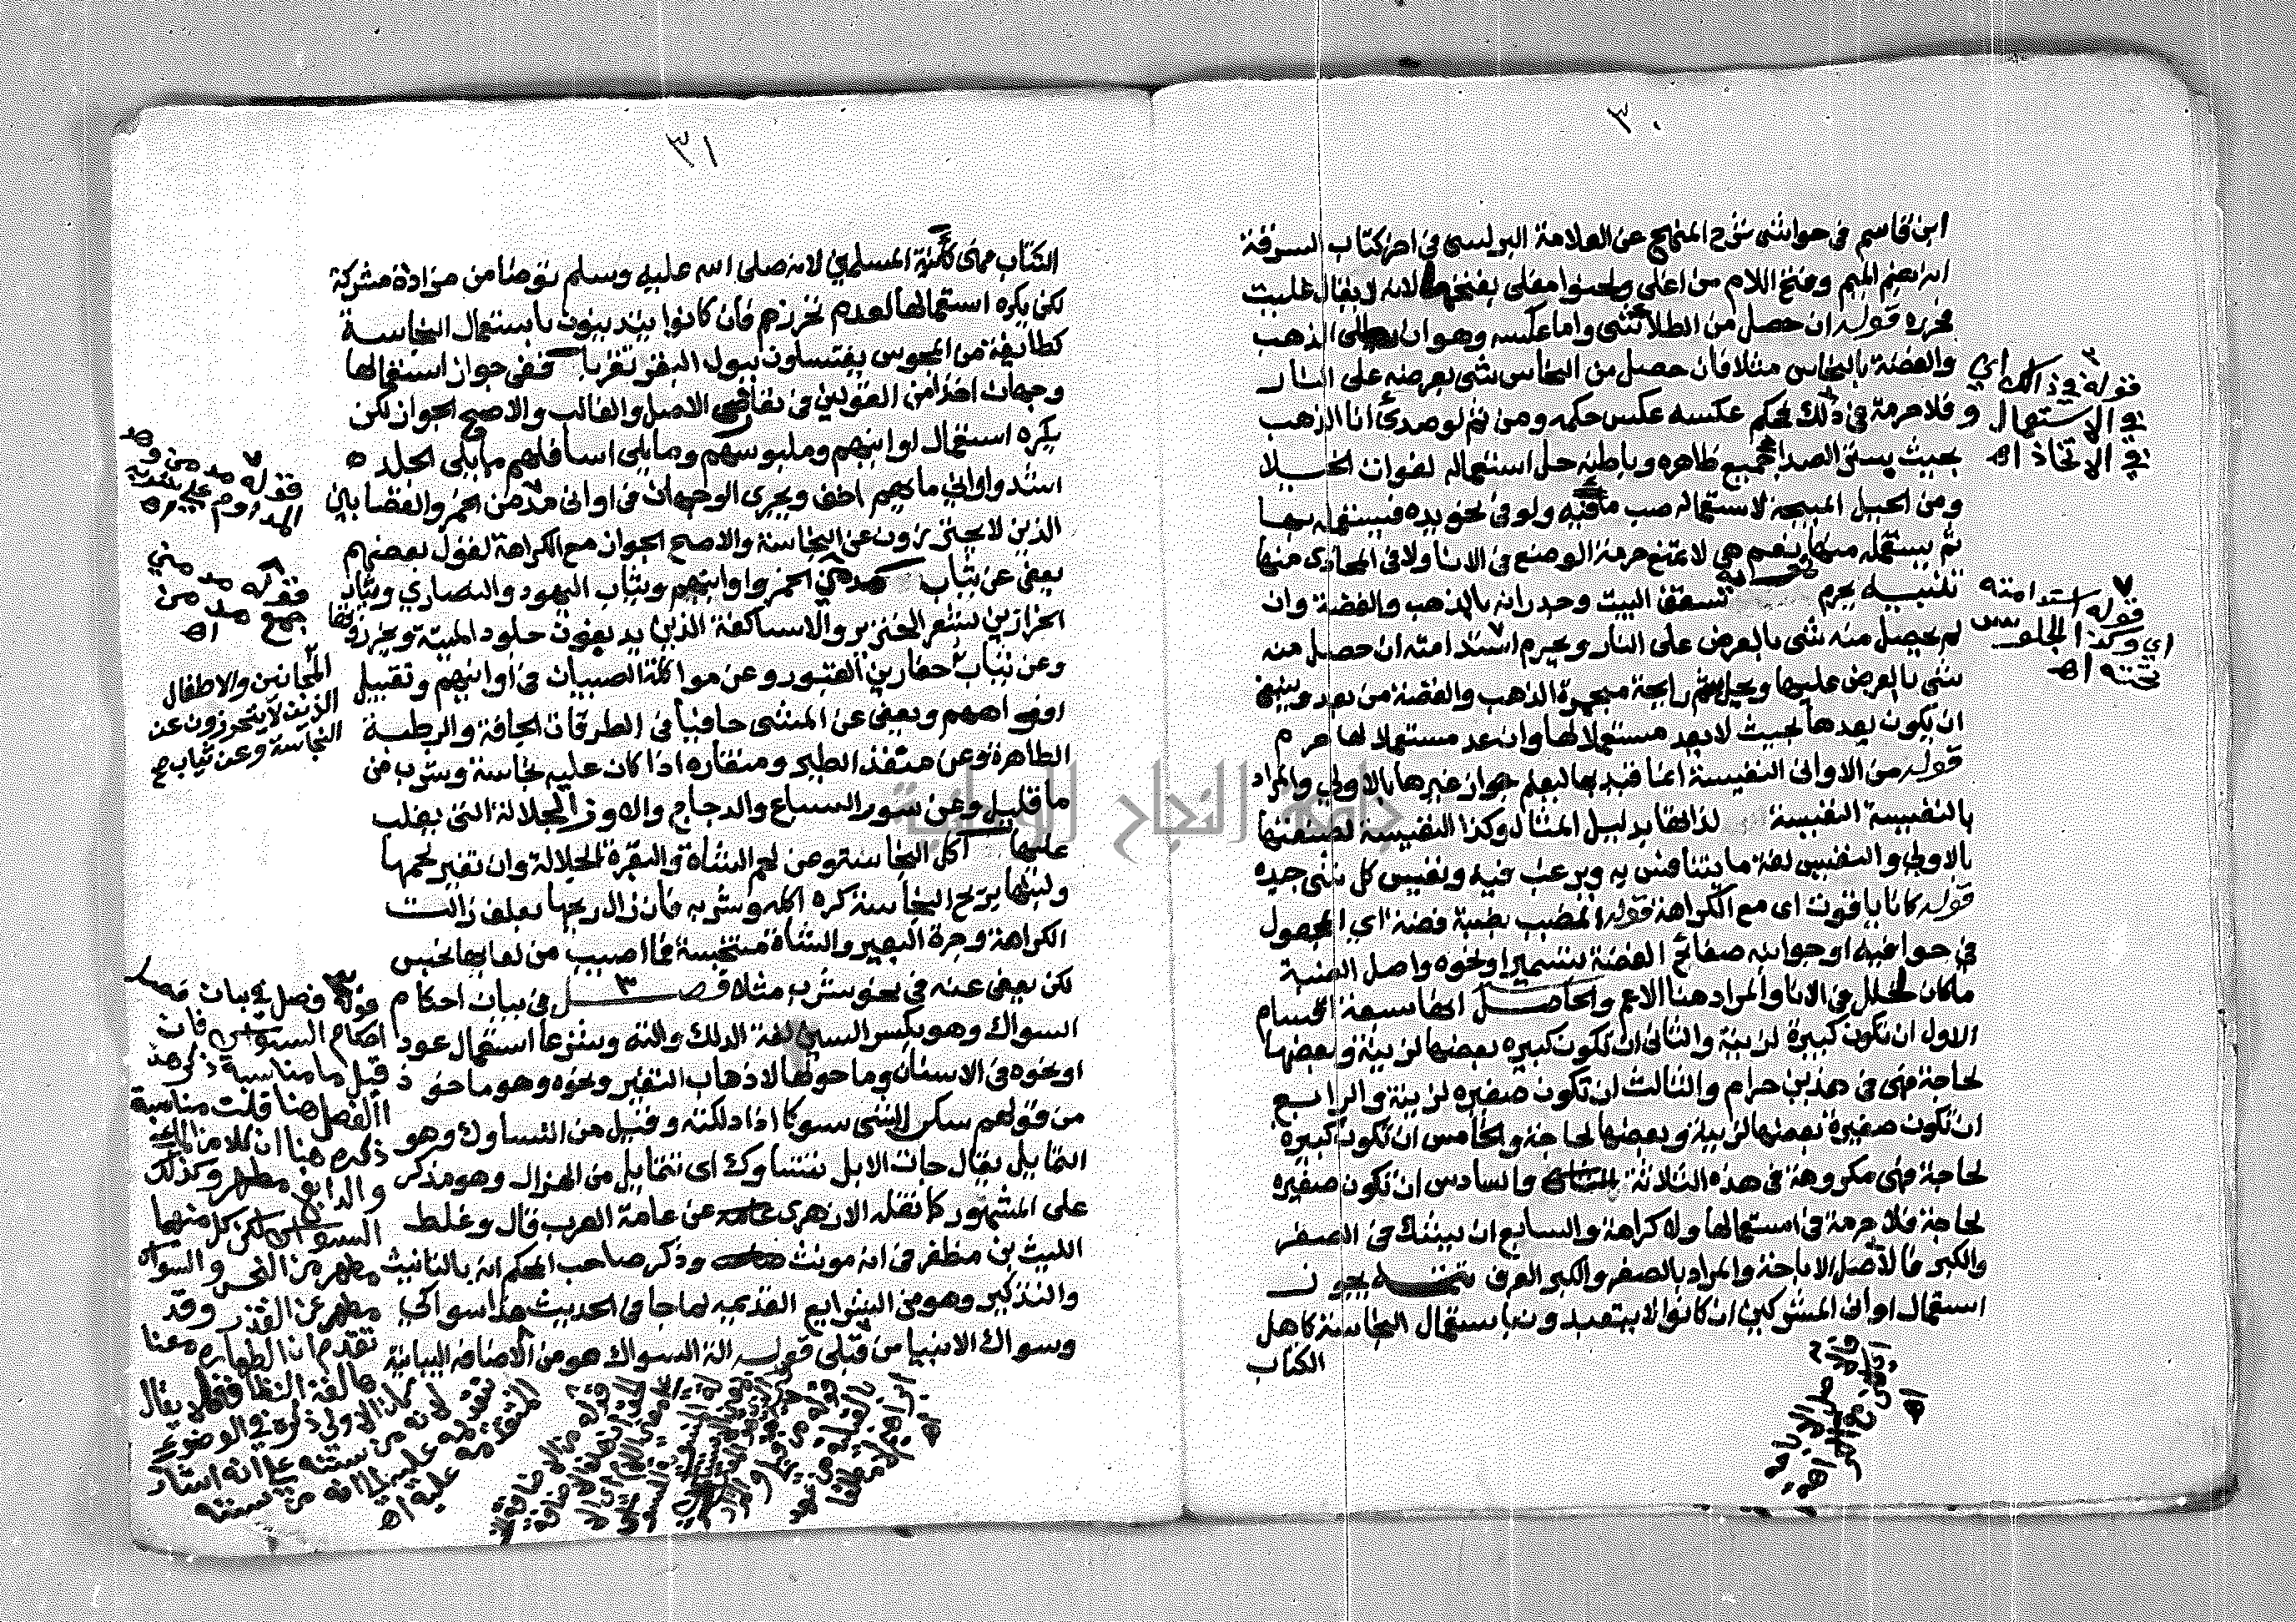 ٣٠
ابن قاسم في حواشي شرح المنهج عن العلامة البرلسي في اخر كتاب السرقة
انه بضم الميم وفتح اللام من اغلي ولحنوا مغلي بفتحها لانه لا يقال غليت
فحرره قوله ان حصل من الطلا شي واما عكسه وهو ان الذهب
والفضة بالنحاس مثلا فان حصل من النحاس شي بعرضه على النار
فلا حرمة في ذلك لحكم عكسه عكس حكمه ومن ثم لو صدي انا الذهب
بحيث يستر الصدا جميع ظاهره وباطنه حل استعماله لفوات الخيلا
ومن الحيل المبيحة لاستعماله صب ما فيه ولو في نحو يده فيستعمله بها
ثم يستعمله منها نعم هي لا تمنع حرمة الوضع في الانا ولا في اتخاذه منها
تنبيه يحرم تسقف البيت وجدرانه بالذهب والفضة وان
لم يحصل منه شي بالعرض على النار ويحرم استدامته ان حصل منه
شي بالعرض عليها ويحل شم رايحة مبخرة الذهب والفضة من بعد وينبغي
ان يكون بعدها بحيث لا يعد مستعملا لها وان عد مستعملا لها حرم
قوله من الاواني النفيسة انما قيد بها ليعلم جواز غيرها بالاولي والمراد
بالنفيسة النفيسة لذاتها بدليل المثال وكذا النفيسة لصنعتها
بالاولي والنفيس لغة ما يتنافس به ويرغب فيه ونفيس كل شي جيده
قوله كانا ياقوت اي مع الكراهة قوله المضبب بضبة فضة اي المجعول
في حوافيه او جوانبه صفائح الفضة بتسمير او نحوه واصل الضبة
ما كان لخلل في الانا والمراد هنا الاعم والحاصل انها سبعة اقسام
الاول ان تكون كبيرة لزينة والثاني ان تكون كبيرة بعضها لزينة وبعضها
لحاجة فهي في هذين حرام والثالث ان تكون صغيره لزينة والرابع
ان تكون صغيرة بعضها لزينة وبعضها لحاجة والخامس ان تكون كبيرة
لحاجة فهي مكروهة في هذه الثلاثة والسادس ان تكون صغيره
لحاجة فلا حرمة في استعمالها ولا كراهة والسابع ان يشك في الصغر
والكبر فالاصل الاباحة والمراد بالصغر والكبر العرف تتمة يجوز
استعمال اواني المشركين ان كانوا لا يتعبدون باستعمال النجاسة كاهل
الكتاب
قوله في ذلك اي
في الاستعمال و
في الاتخاذ اهـ
قوله استدامته
اي وكذا الجلوس
تحته اهـ
٣١
الكتاب فهي كآنية المسلمين لانه صلى الله عليه وسلم توضا من مزادة مشركة
لكن يكره استعمالها لعدم تحرزهم فان كانوا يتدينون باستعمال النجاسة
كطايفة من المجوس يغتسلون ببول البقر تقربا ففي جواز استعمالها
وجهان اخذا من القولين في تعارض الاصل والغالب والاصح الجواز لكن
يكره استعمال اوانيهم وملبوسهم وما يلي اسافلهم مما يلي الجلد
اشد واواني مايهم اخف ويجري الوجهان في اواني مدمن الخمر والقصابين
الذين لا يحترزون عن النجاسة والاصح الجواز مع الكراهة لقول بعضهم
يعفى عن ثياب مدمني الخمر واوانيهم وثياب اليهود والنصاري وثياب
الخرازين بشعر الخنزير والاساكفة الذين يدبغون جلود الميتة ويخرزونها
وعن ثياب حفارين القبور وعن مواكلة الصبيان في اوانيهم وتقبيل
افواههم ويعفى عن المشي حافيا في الطرقات الجافة والرطبة
الطاهرة وعن منفذ الطير ومنقاره اذا كان عليه نجاسة وشرب من
ما قليل وعن سور السباع والدجاج والاوز الجلالة التي يغلب
عليها اكل النجاسة وعن لحم الشاة والبقرة الجلالة وان تغير لحمها
ولبنها بريح النجاسة كره اكله وشربه فان زال ريحها بعلف زالت
الكراهة وجرة البعير والشاة متنجسة فما اصيب من لعابها نجس
لكن يعفى عنه في نحو شرب مثلا فصل في بيان احكام
السواك وهو بكسر السين لغة الدلك والته وشرعا استعمال عود
او نحوه في الاسنان وما حولها لاذهاب التغير ونحوه وهو ماخوذ
من قولهم ساك الشي سوكا اذا دلكته وقيل من التساوك وهو
التمايل يقال جات الابل تتساوك اي تتمايل من الهزال وهو مذكر
على المشهور كما نقله الازهري عن عامة العرب قال وغلط
الليث بن مظفر في انه مونث وذكر صاحب المحكم انه بالتانيث
والتذكير وهو من الشرايع القديمه لما جا في الحديث هذا سواكي
وسواك الانبيا من قبلي قوله الة السواك هو من الاضافه البيانية
قوله مدمن هو
المداوم على شربه اهـ
قوله مدمني
جمع مدمن
اهـ
المجانين والاطفال
الذين لا يتحرزون عن
النجاسة وعن ثياب صح
قوله فصل في بيان
احكام السواك فان
قيل ما مناسبة ذكر هذا
الفصل هنا قلت مناسبة
ذكره هنا ان كلا من الماء
والدابغ مطهر وكذلك
السواك لكن كل منهما
مطهر من النجس والسواك
مطهر من القذر وقد
تقدم ان الطهارة معناها
لغة النظافة فلا يقال
كان الاولى ذكره في الوضوء
لانه من سننه على انه اشار